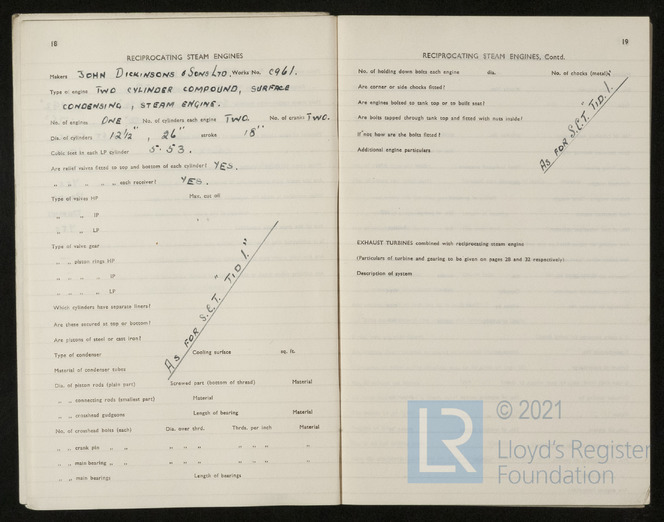 18
RECIPROCATING STEAM ENGINES
Makers JOHN DICKINSONS & SONS LTD. Works No. C961.
Type of engine TWO CYLINDER COMPOUND, SURFACE
CONDENSING, STEAM ENGINE.
No. of engines ONE No. of cylinders each engine TWO. No. of cranks TWO.
Dia. of cylinders 12½", 26" stroke 18"
Cubic feet in each LP cylinder 5.53.
Are relief valves fitted to top and bottom of each cylinder? YES.
" " " " " each receiver? YES.
Type of valves HP Max. cut off
" " IP
" " LP
Type of valve gear
" " piston rings HP
" " " " IP
" " " " LP
Which cylinders have separate liners?
Are these secured at top or bottom?
Are pistons of steel or cast iron?
Type of condenser Cooling surface sq. ft.
Material of condenser tubes
Dia. of piston rods (plain part) Screwed part (bottom of thread) Material
" " connecting rods (smallest part) Material
" " crosshead gudgeons Length of bearing Material
No. of crosshead bolts (each) Dia. over thrd. Thrds. per inch Material
" " crank pin " " " " " " " " "
" " main bearing " " " " " " " " "
" " main bearings Length of bearings
AS FOR S.C.T. "TID 1."
19
RECIPROCATING STEAM ENGINES, Contd.
No. of holding down bolts each engine dia. No. of chocks (metal)
Are corner or side chocks fitted?
Are engines bolted to tank top or to built seat?
Are bolts tapped through tank top and fitted with nuts inside?
If not how are the bolts fitted?
Additional engine particulars
AS FOR S.C.T. "TID. 1."
EXHAUST TURBINES combined with reciprocating steam engine
(Particulars of turbine and gearing to be given on pages 28 and 32 respectively)
Description of system
LR
© 2021
Lloyd's Register
Foundation